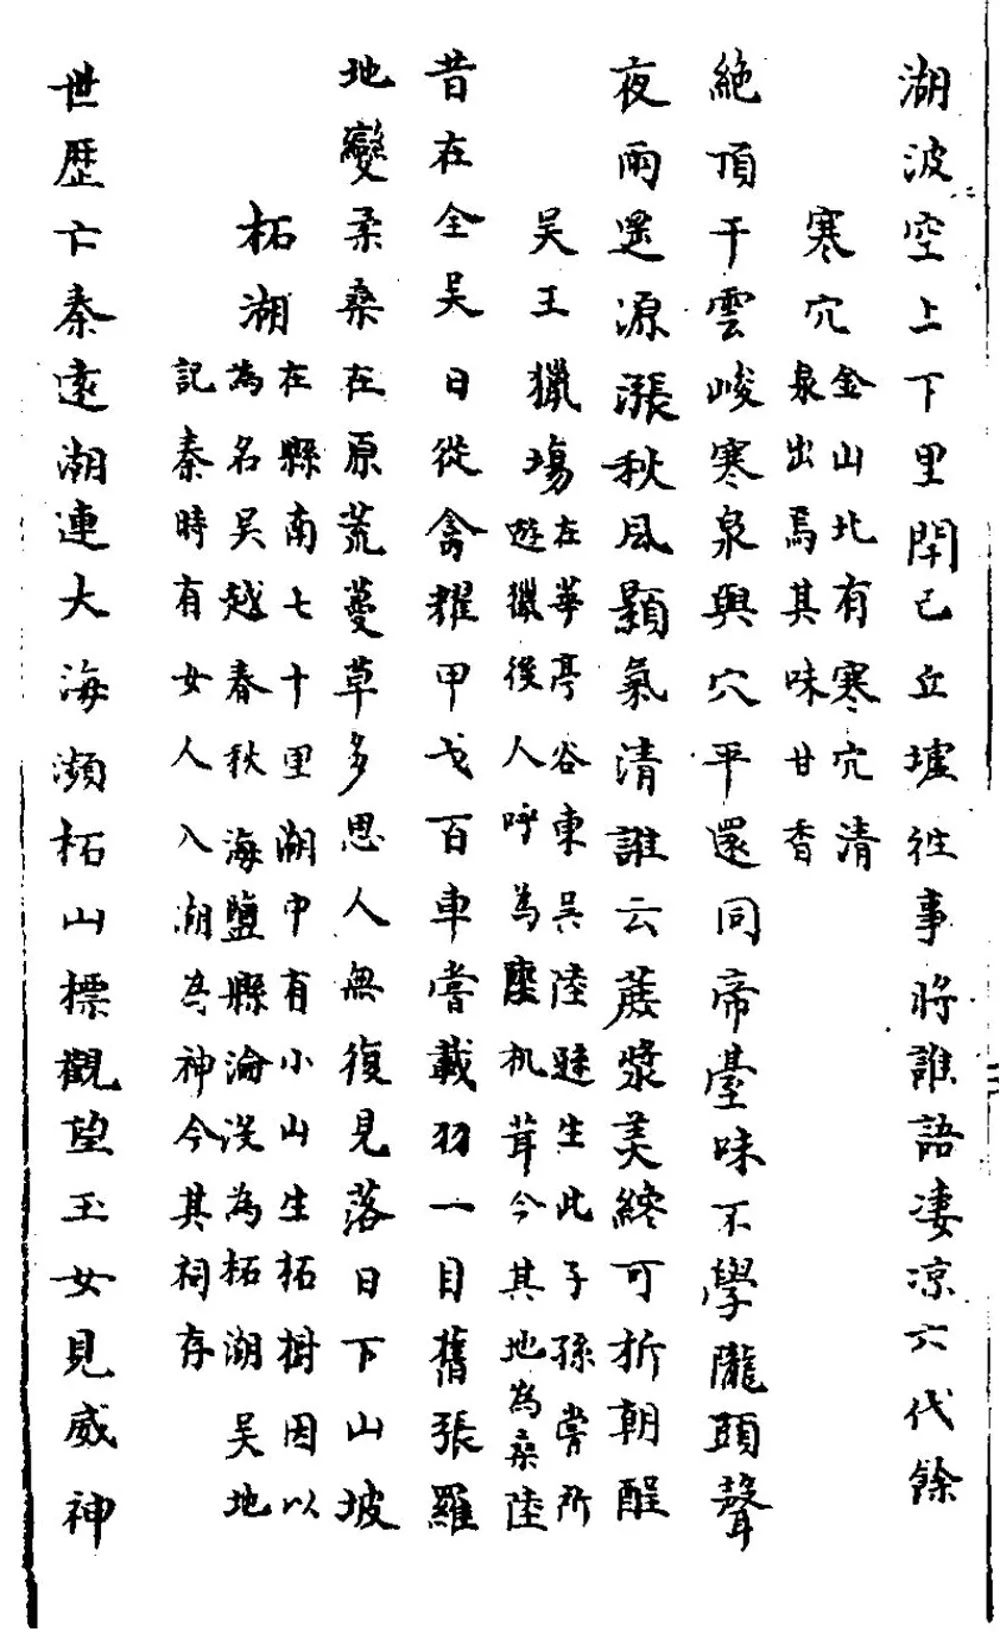 湖波空上下里閈已丘墟徃事將誰語凄凉六代餘
寒穴
金山北有寒穴清
泉出焉其味甘香
絶頂干雲峻寒泉與穴平還同帝臺味不學隴頭聲
夜雨源漲秋風顥氣清誰云蔗漿美纔可折朝酲
吴王獵塲
在華亭谷東吴陸遜生此子孫嘗所
遊獵後人呼為陸机茸今其地為桑陸
昔在全吴日從禽耀甲戈百車嘗載羽一目舊張羅
地變柔桑在原荒蔓草多思人無復見落日下山坡
柘湖
在縣南七十里湖中有小山生柘樹因以
為名吴越春秋海鹽縣淪没為柘湖吴地
記秦時有女人入湖為神今其祠存
世歴亡秦逺湖連大海瀕柘山標觀望玉女見威神